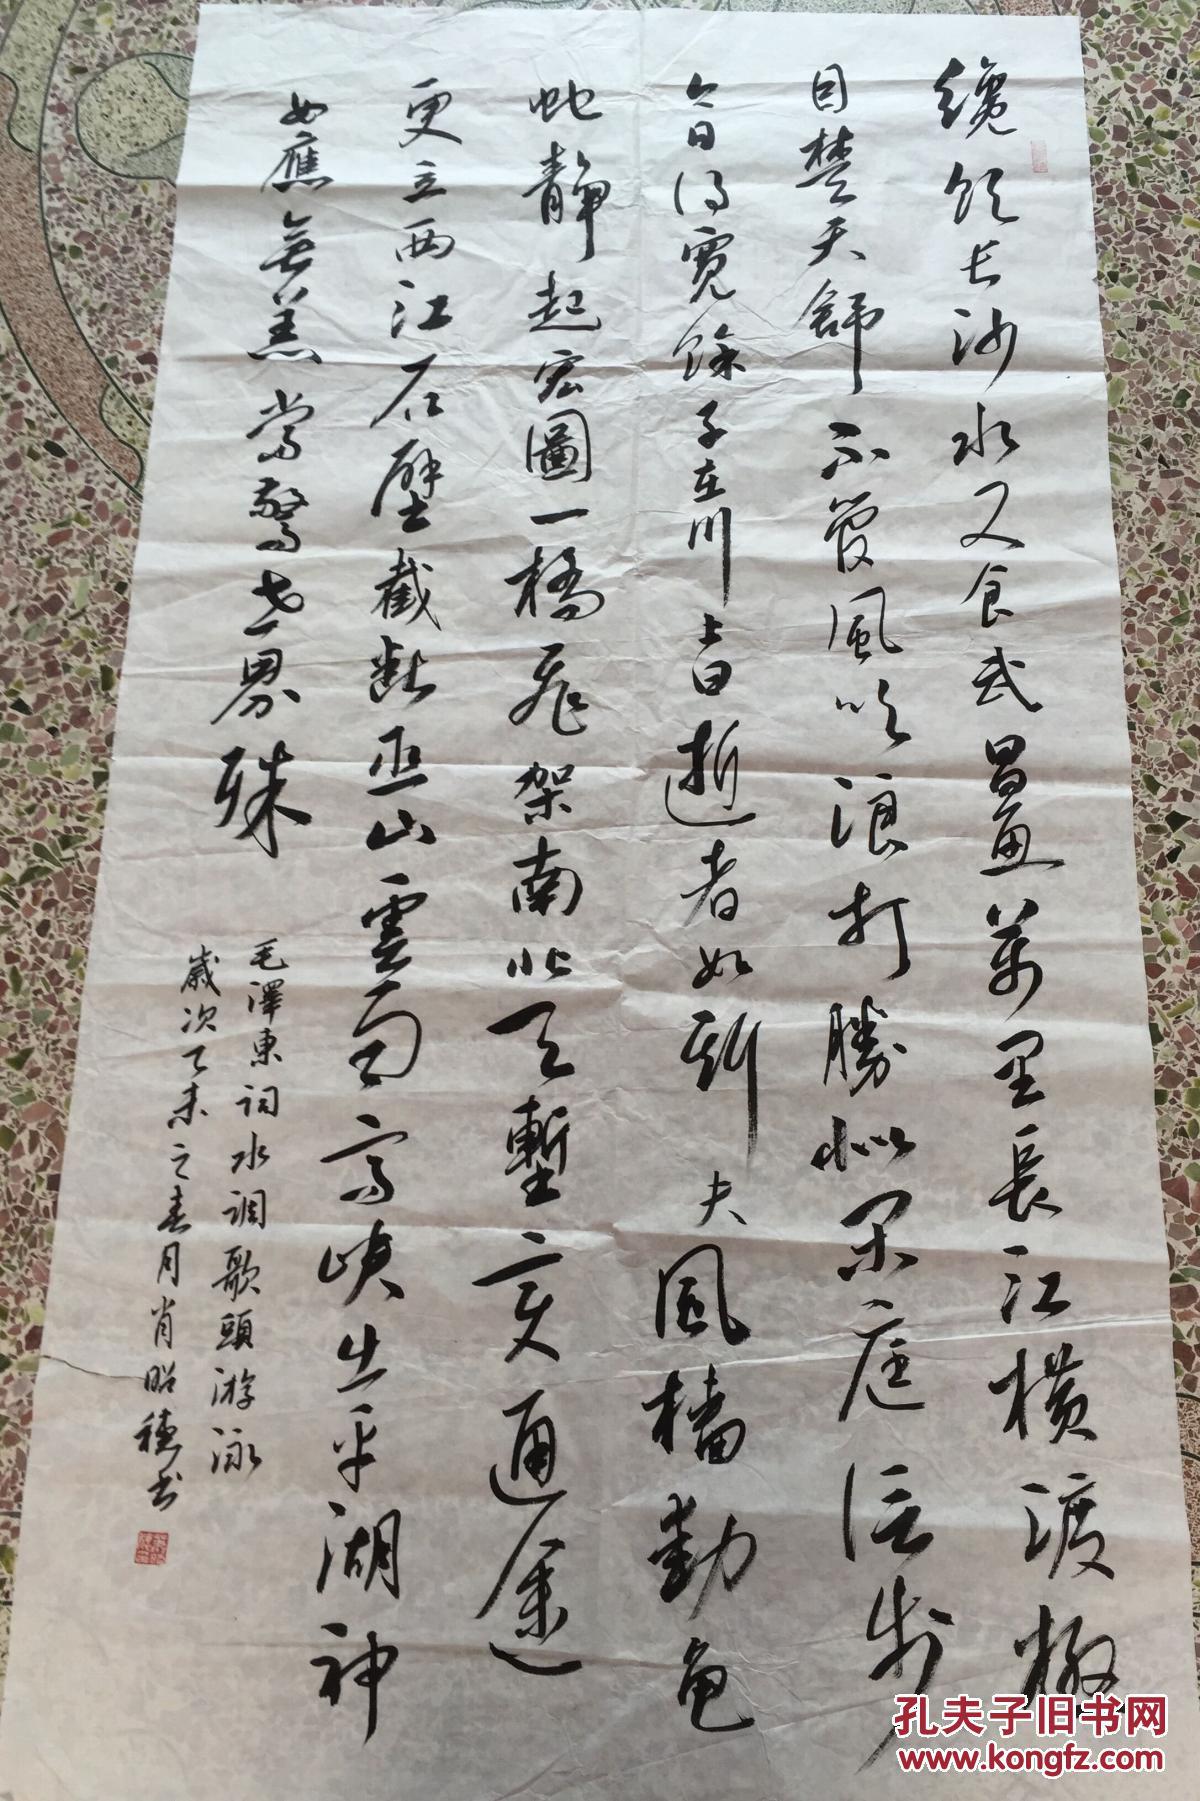 纔飲长沙水又食武昌魚萬里長江橫渡極
目楚天舒不管風吹浪打勝似閑庭信步
今日得寬餘子在川上曰逝者如斯夫風檣動龜
蛇靜起宏圖一橋飛架南北天塹變通途
更立西江石壁截斷巫山雲雨高峽出平湖神
女應無恙當驚世界殊
毛澤東詞水調歌頭游泳
歲次乙未之春月肖昭穗书
孔夫子旧书网
www.kongfz.com